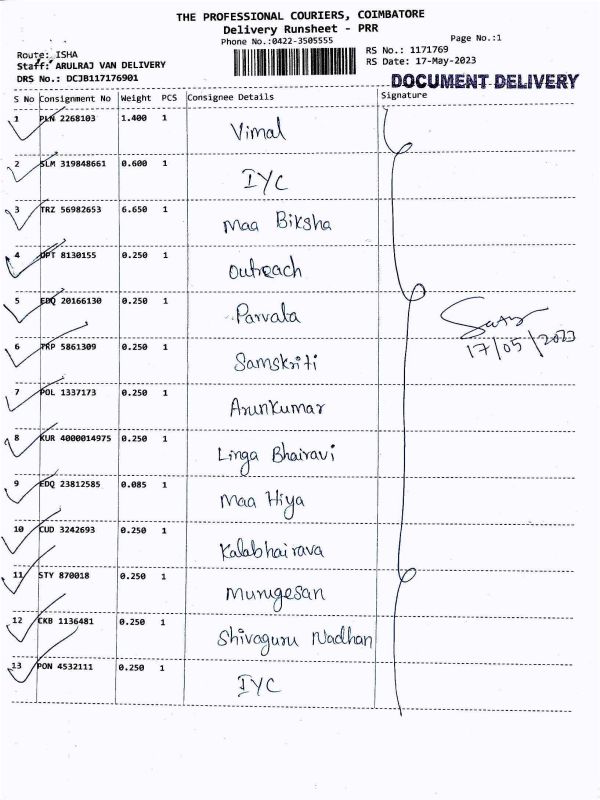 THE PROFESSIONAL COURIERS, COIMBATORE
Delivery Runsheet - PRR
Phone No.:0422-3505555
Page No.:1
Route: ISHA
RS No.: 1171769
Staff: ARULRAJ VAN DELIVERY
RS Date: 17-May-2023
DRS No.: DCJB117176901
DOCUMENT DELIVERY
S No Consignment No Weight PCS Consignee Details Signature
1 PLN 2268103 1.400 1 Vimal
2 SLM 319848661 0.600 1 IYC
3 TRZ 56982653 6.650 1 Maa Biksha
4 OPT 8130155 0.250 1 Outreach
5 EDQ 20166130 0.250 1 Parvata
6 TRP 5861309 0.250 1 Samskriti
17/05/2023
7 POL 1337173 0.250 1 Arunkumar
8 KUR 4000014975 0.250 1 Linga Bhairavi
9 EDQ 23812585 0.085 1 Maa Hiya
10 CUD 3242693 0.250 1 Kalabhairava
11 STY 870018 0.250 1 Murugesan
12 CKB 1136481 0.250 1 Shivaguru Nadhan
13 PON 4532111 0.250 1 IYC